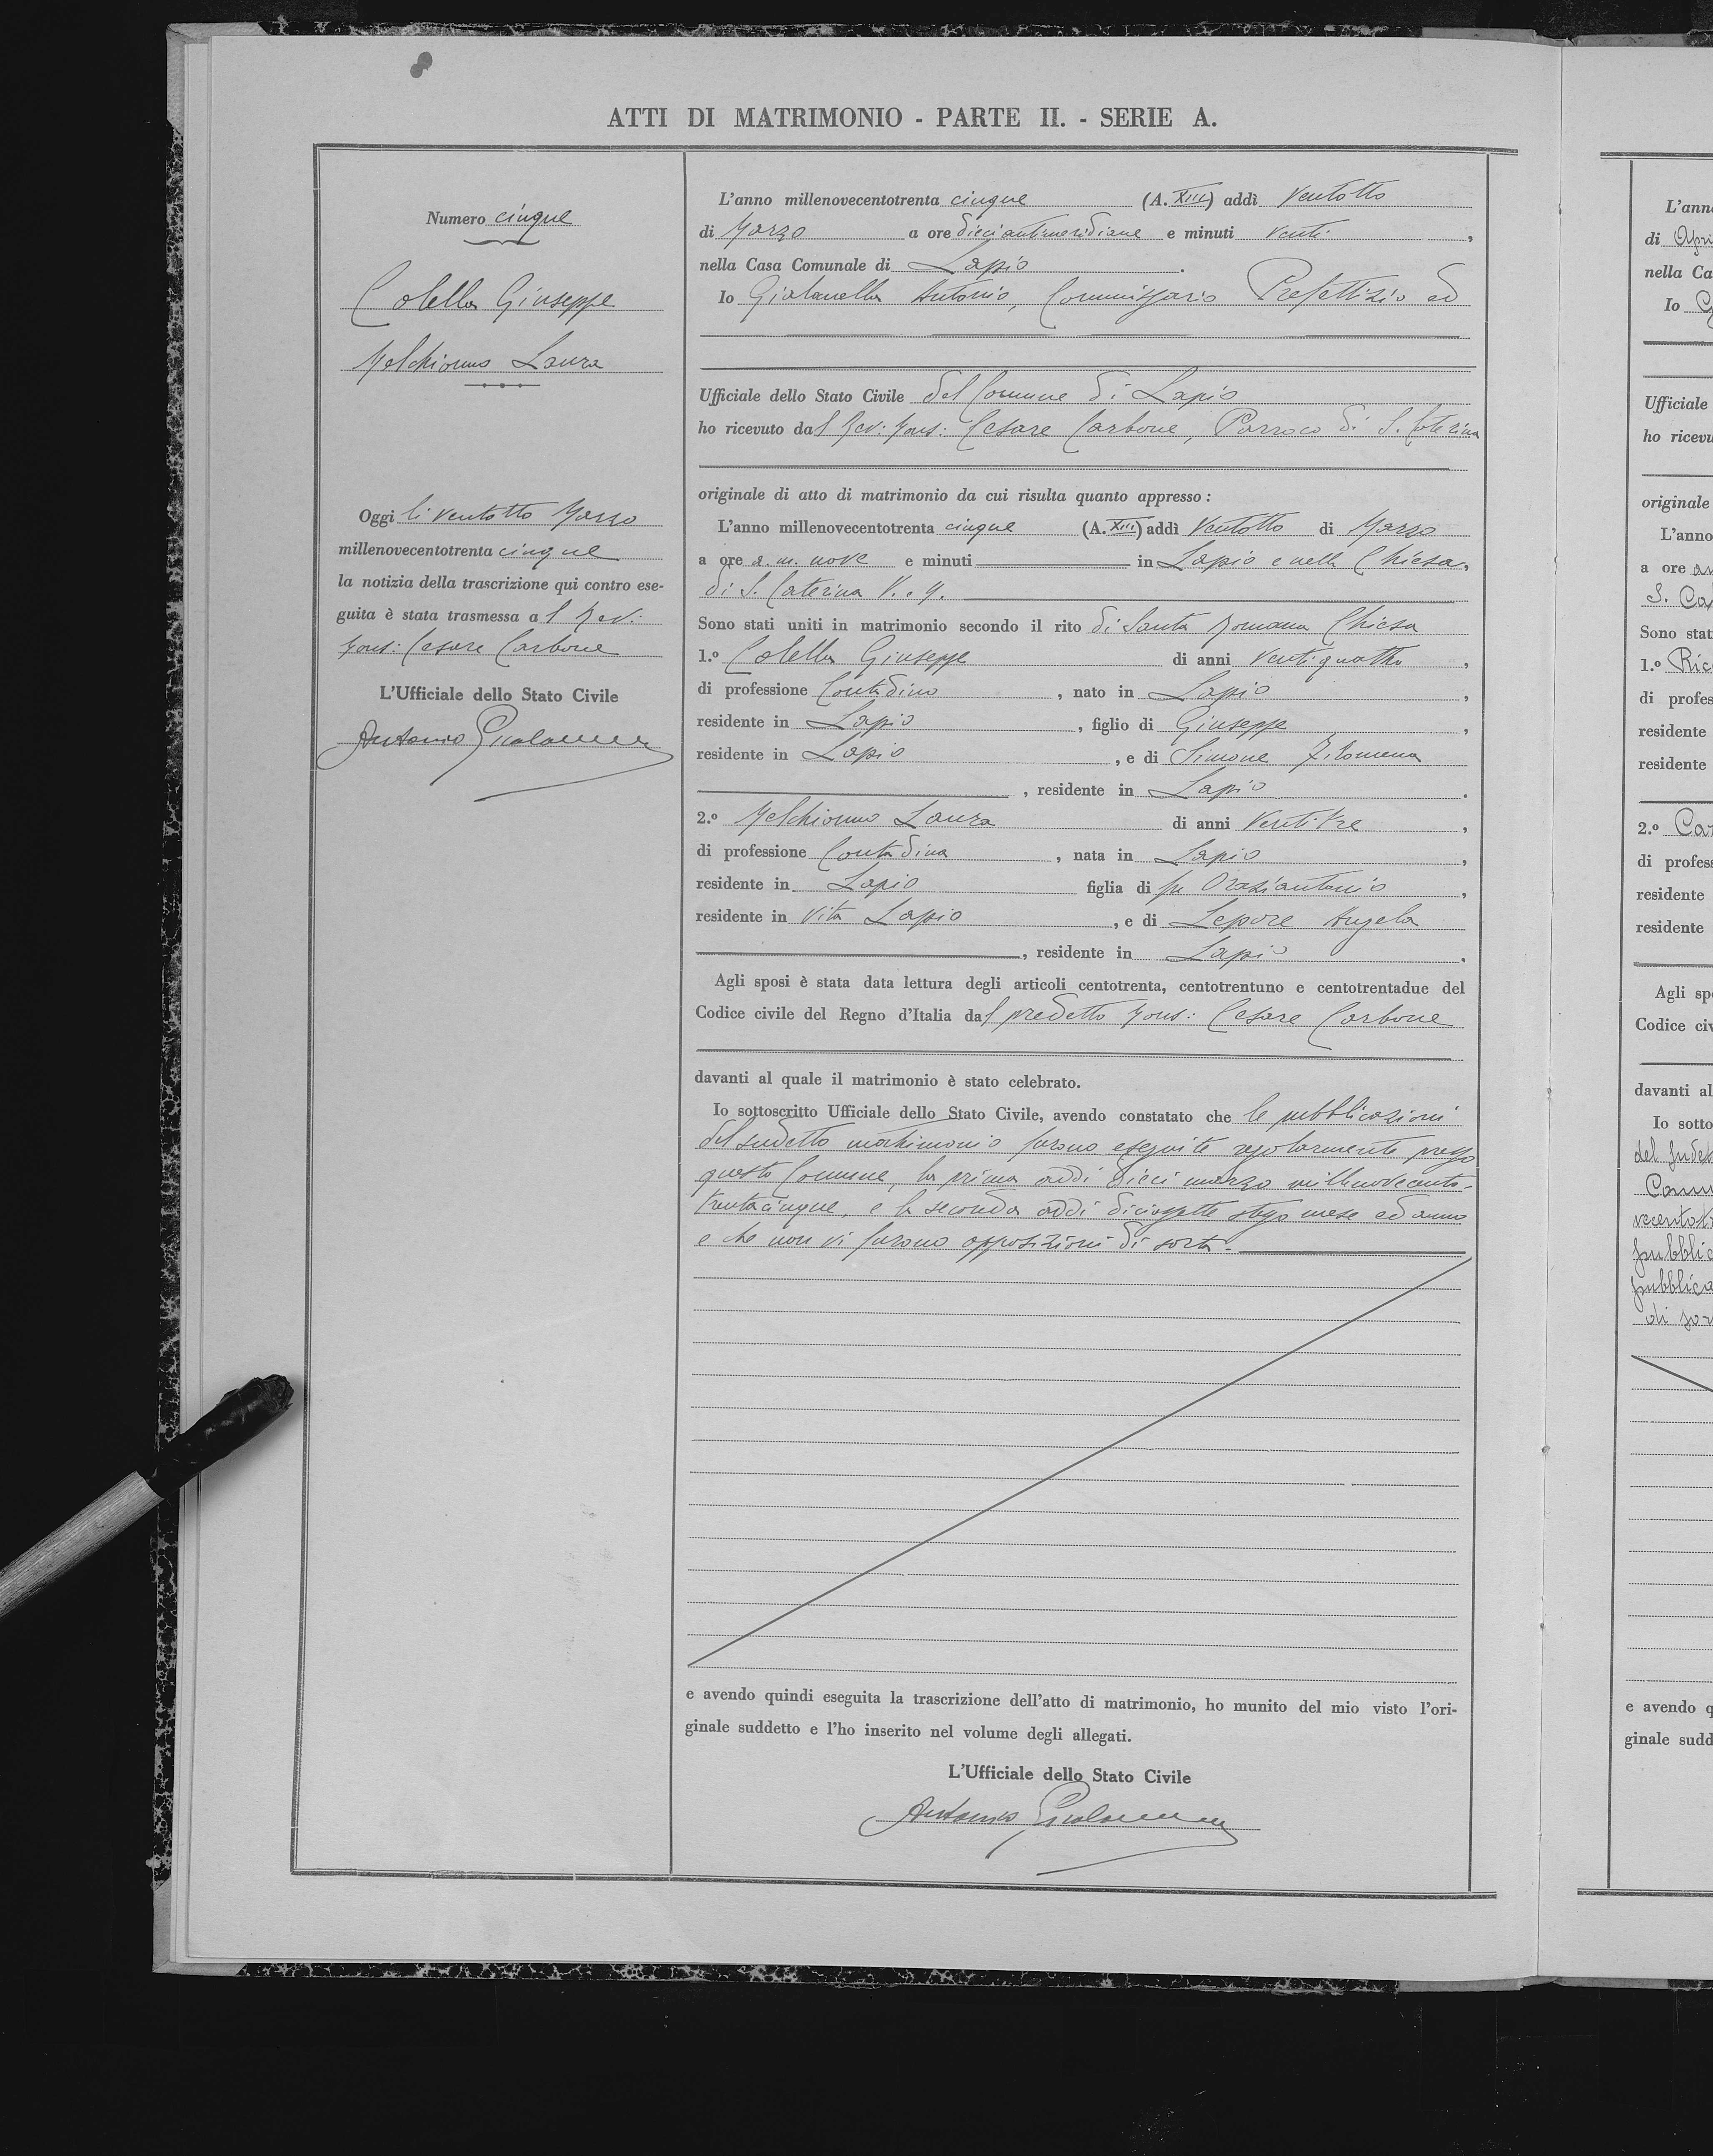 ATTI DI MATRIMONIO - PARTE II. - SERIE A.
Numero cinque
Colella Giuseppe
Melchionno Laura
Oggi li ventotto Marzo
millenovecentotrenta cinque
la notizia della trascrizione qui contro ese-
guita è stata trasmessa al Rev:
Mons: Cesare Carbone
L'Ufficiale dello Stato Civile
Antonio
L'anno millenovecentotrenta cinque (A. XIII) addì ventotto
di Marzo a ore dieci antimeridiane e minuti venti,
nella Casa Comunale di Lapio.
Io Giolanella Antonio, Commissario Prefettizio ed
Ufficiale dello Stato Civile del Comune di Lapio
ho ricevuto dal Rev: Mons: Cesare Carbone, Parroco di S. Caterina
originale di atto di matrimonio da cui risulta quanto appresso:
L'anno millenovecentotrenta cinque (A. XIII) addì ventotto di Marzo
a ore a. m. nove e minuti in Lapio e nella Chiesa,
di S. Caterina V. e M.
Sono stati uniti in matrimonio secondo il rito di Santa Romana Chiesa
1.º Colella Giuseppe di anni ventiquattro,
di professione Contadino, nato in Lapio,
residente in Lapio, figlio di Giuseppe,
residente in Lapio, e di Simone Filomena
, residente in Lapio.
2.º Melchionno Laura di anni ventitre,
di professione Contadina, nata in Lapio,
residente in Lapio figlia di fu Oraziantonio,
residente in vita Lapio, e di Lepore Angela
, residente in Lapio.
Agli sposi è stata data lettura degli articoli centotrenta, centotrentuno e centotrentadue del
Codice civile del Regno d'Italia dal predetto Mons: Cesare Carbone
davanti al quale il matrimonio è stato celebrato.
Io sottoscritto Ufficiale dello Stato Civile, avendo constatato che le pubblicazioni
del sudetto matrimonio furono eseguite regolarmente presso
questo Comune, la prima addì dieci marzo millenovecento-
trentacinque, e la seconda addì diciassette stesso mese ed anno
e che non vi furono opposizioni di sorta.
e avendo quindi eseguita la trascrizione dell'atto di matrimonio, ho munito del mio visto l'ori-
ginale suddetto e l'ho inserito nel volume degli allegati.
L'Ufficiale dello Stato Civile
Antonio
L'ann
di Apri
nella Ca
Io
Ufficiale
ho ricevu
originale
L'anno
a ore an
S. Ca
Sono stat
1.º Ric
di profes
residente
residente
2.º Car
di profess
residente
residente
Agli sp
Codice civ
davanti al
Io sotto
del sudet
Comu
vecentot
pubblic
pubblica
di sor
e avendo q
ginale sudd